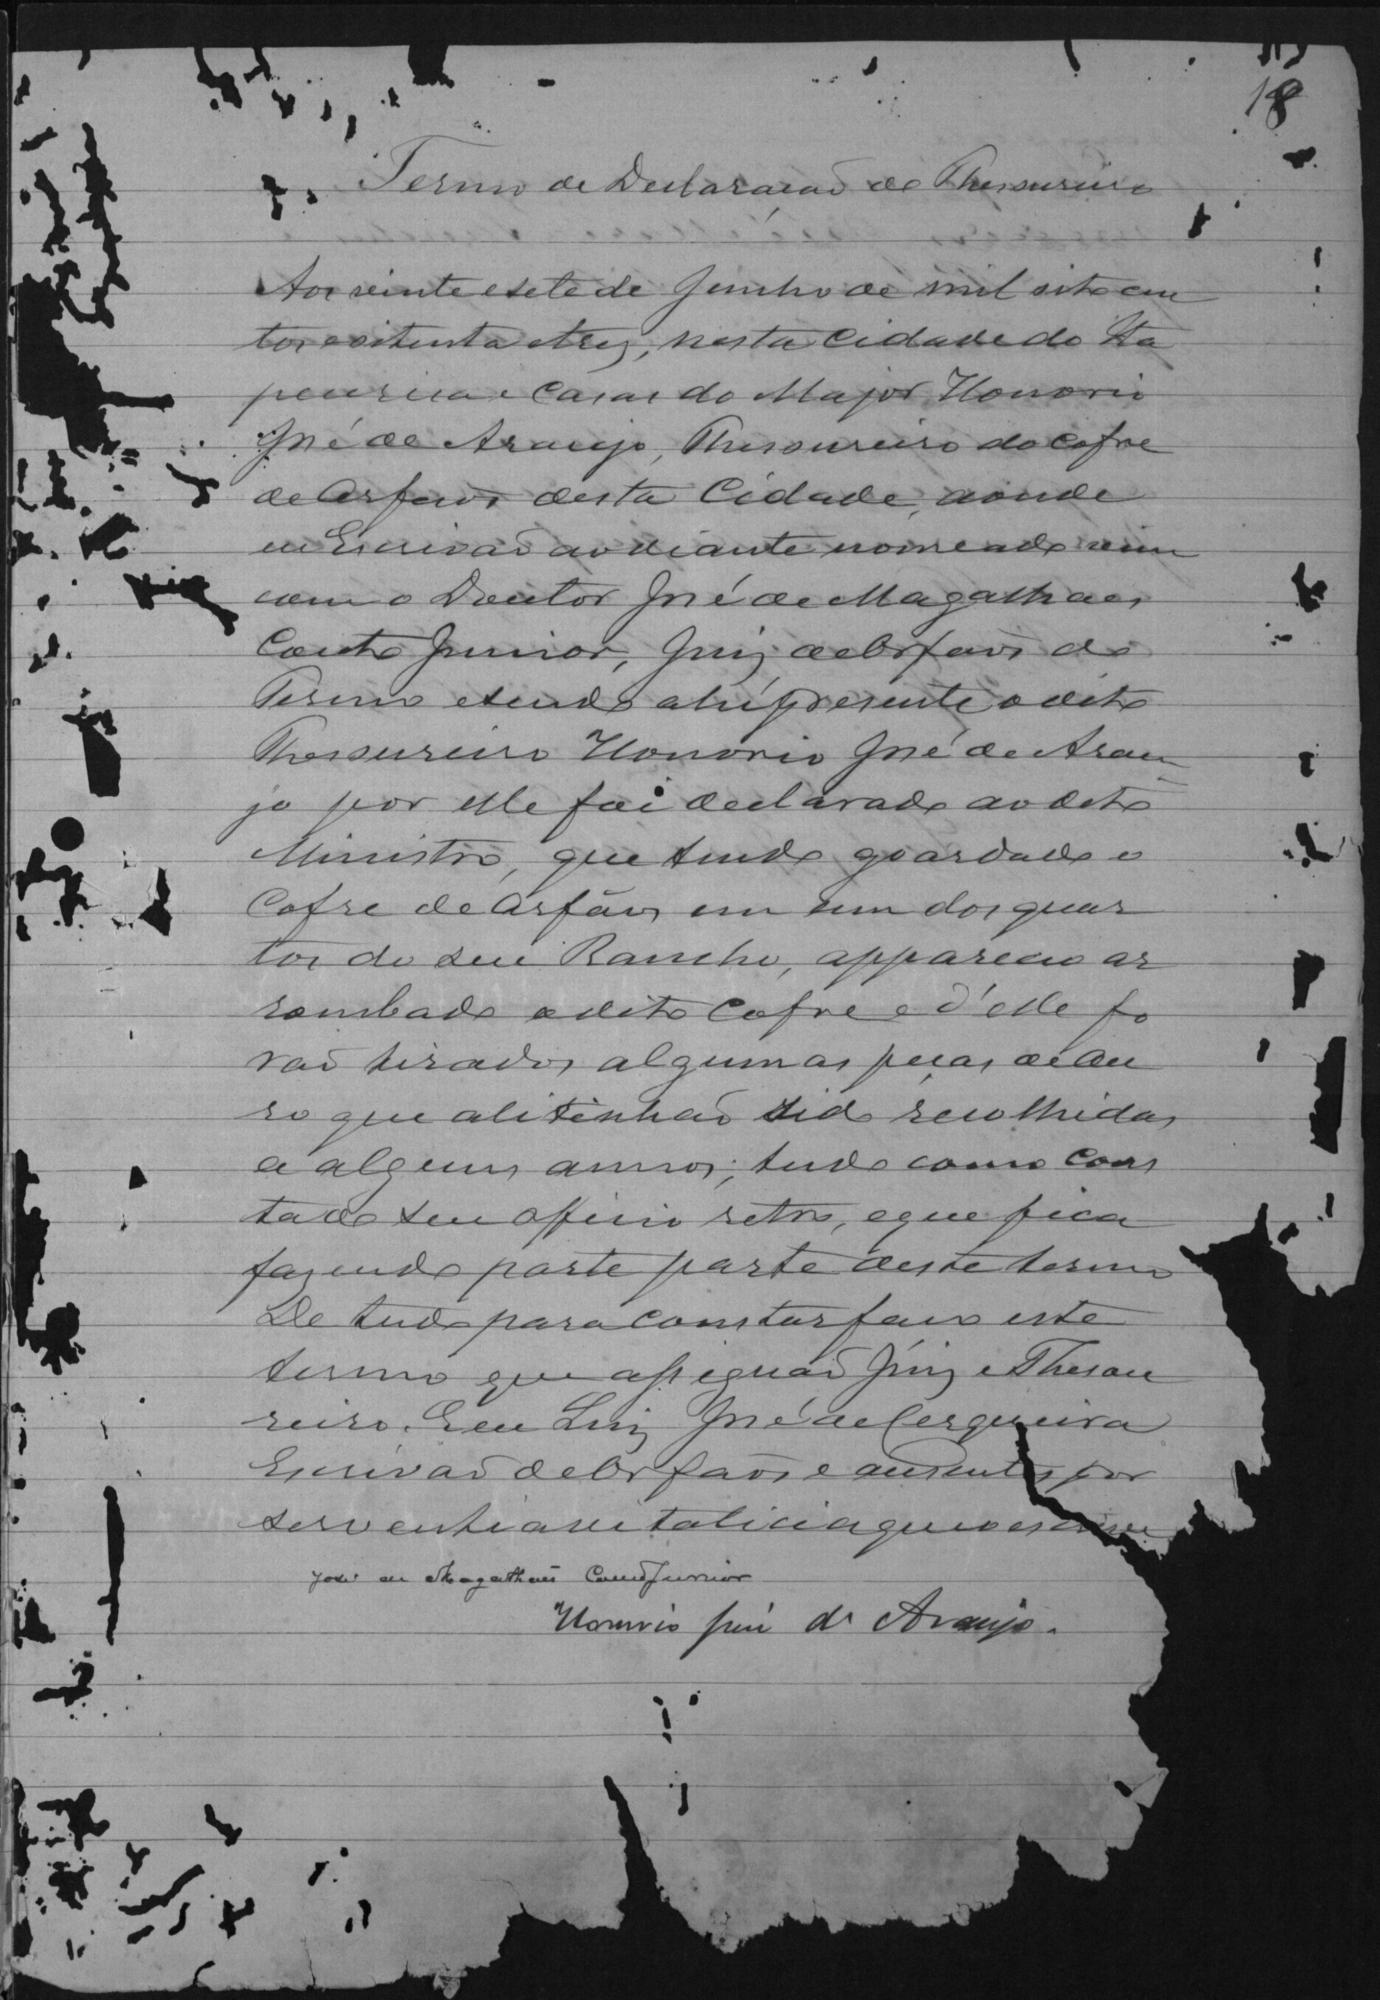 18
Termo de Declaração do Thesoureiro
Aos vinte e sete de Junho de mil oito cen
tos e oitenta e tres, nesta Cidade do Ita
pecurica e Casas do Major Honorio
José de Araujo, Thesoureiro do Cofre
de Orfaõs desta Cidade, aonde
eu Escrivaõ ao diante nomeado vim
com o Doutor José de Magalhaes
Couto Junior, Juiz de Orfaõs do
Termo e sendo ahi presente o dito
Thesoureiro Honorio José de Arau-
jo por elle foi declarado ao dito
Ministro, que tendo goardado o
Cofre de Orfãos em um dos quar
tos do seu Rancho, appareceo ar
rombado o dito Cofre e d'elle fo
raõ tirados algumas peças de Ou
ro que ali tinhaõ sido recolhidas
a alguns annos; tudo como cons
ta do seu officio retro, e que fica
fazendo parte parte deste termo
De tudo para constar faço este
termo que assignaõ Juiz e Thesou
reiro. E eu Luiz José de Cerqueira
Escrivaõ de Orfaõs e ausentes por
serventia vitalicia que o escrevi
José de Magalhães Couto Junior
Honorio José de Araujo.